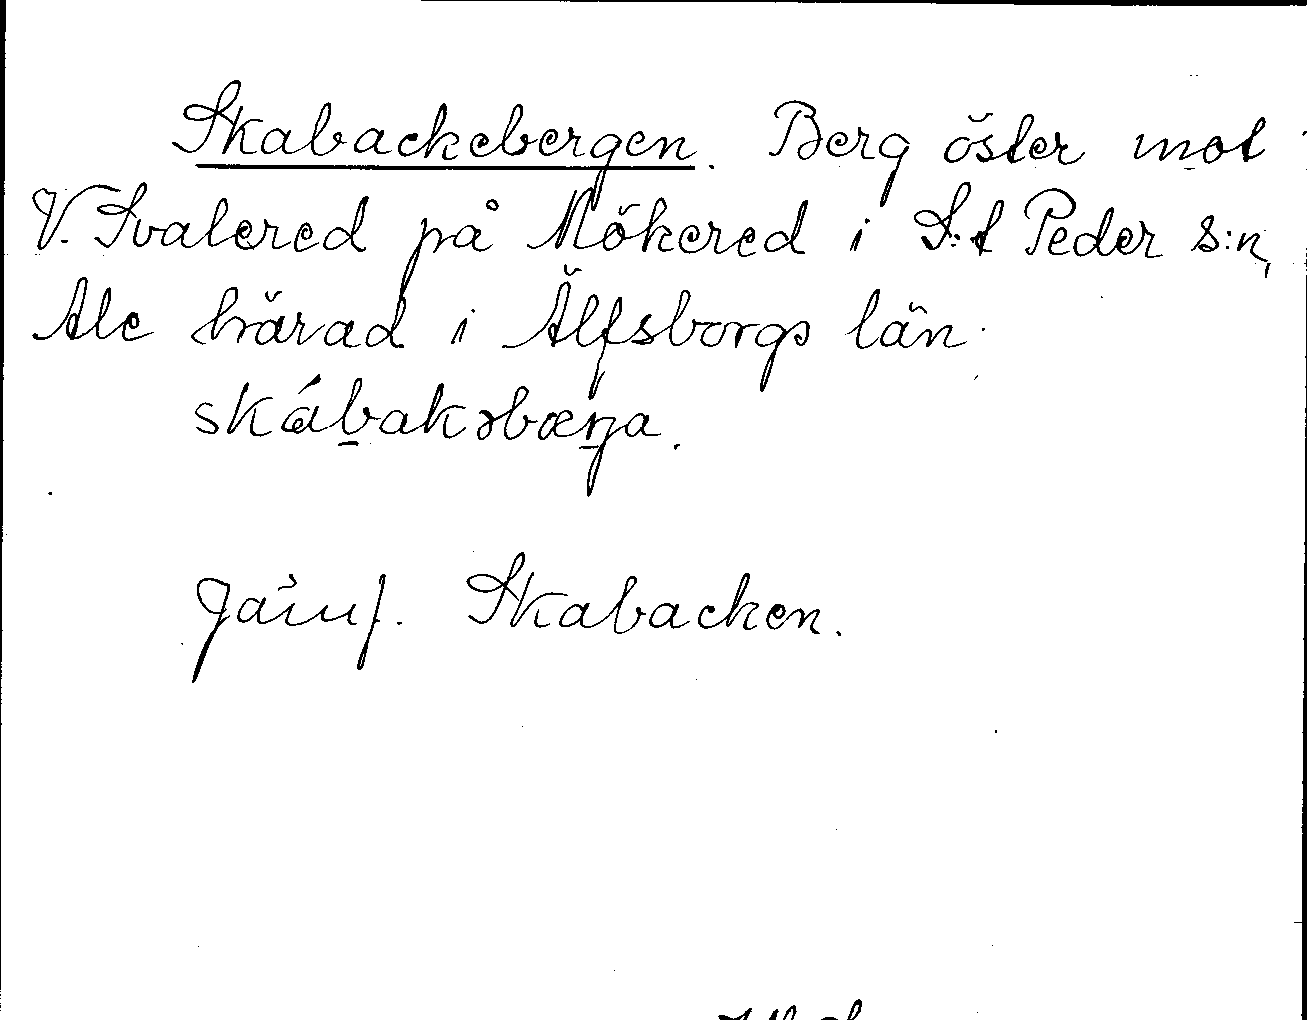 Skabackebergen. Berg öster mot
V. Svalered på Mökered i S:t Peder s:n,
Ale härad i Älfsborgs län.
skábakəbæŋa.
Jämf. Skabacken.